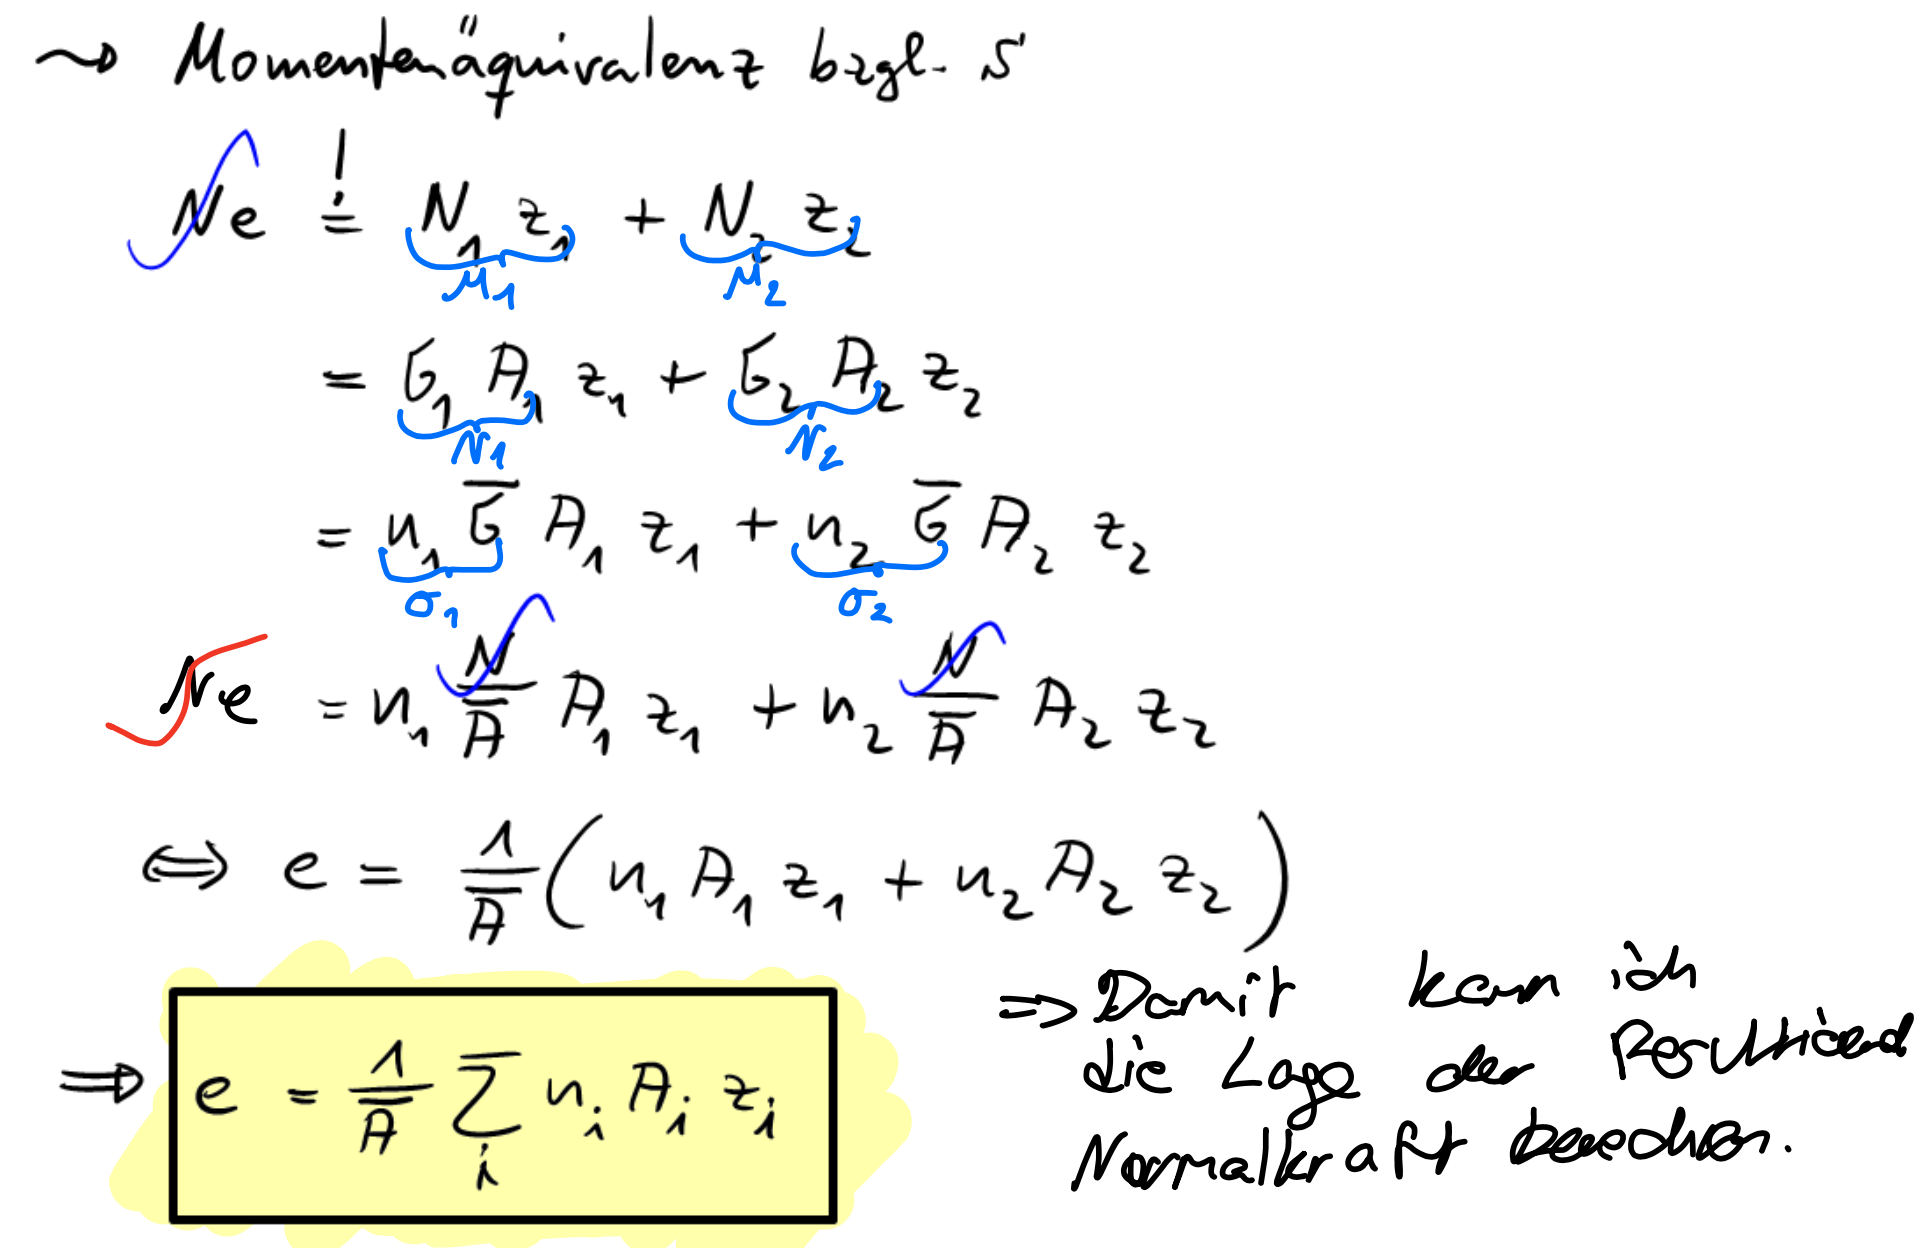 ⇝ Momentenäquivalenz bzgl. S
N e =! N₁ z₁ + N₂ z₂
M₁ M₂
= σ₁ A₁ z₁ + σ₂ A₂ z₂
N₁ N₂
= n₁ σ̅ A₁ z₁ + n₂ σ̅ A₂ z₂
σ₁ σ₂
N e = n₁ N/A̅ A₁ z₁ + n₂ N/A̅ A₂ z₂
⇔ e = 1/A̅ (n₁ A₁ z₁ + n₂ A₂ z₂)
⇒ e = 1/A̅ Σᵢ nᵢ Aᵢ zᵢ
⇒ Damit kann ich
die Lage der
Normalkraft berechnen.